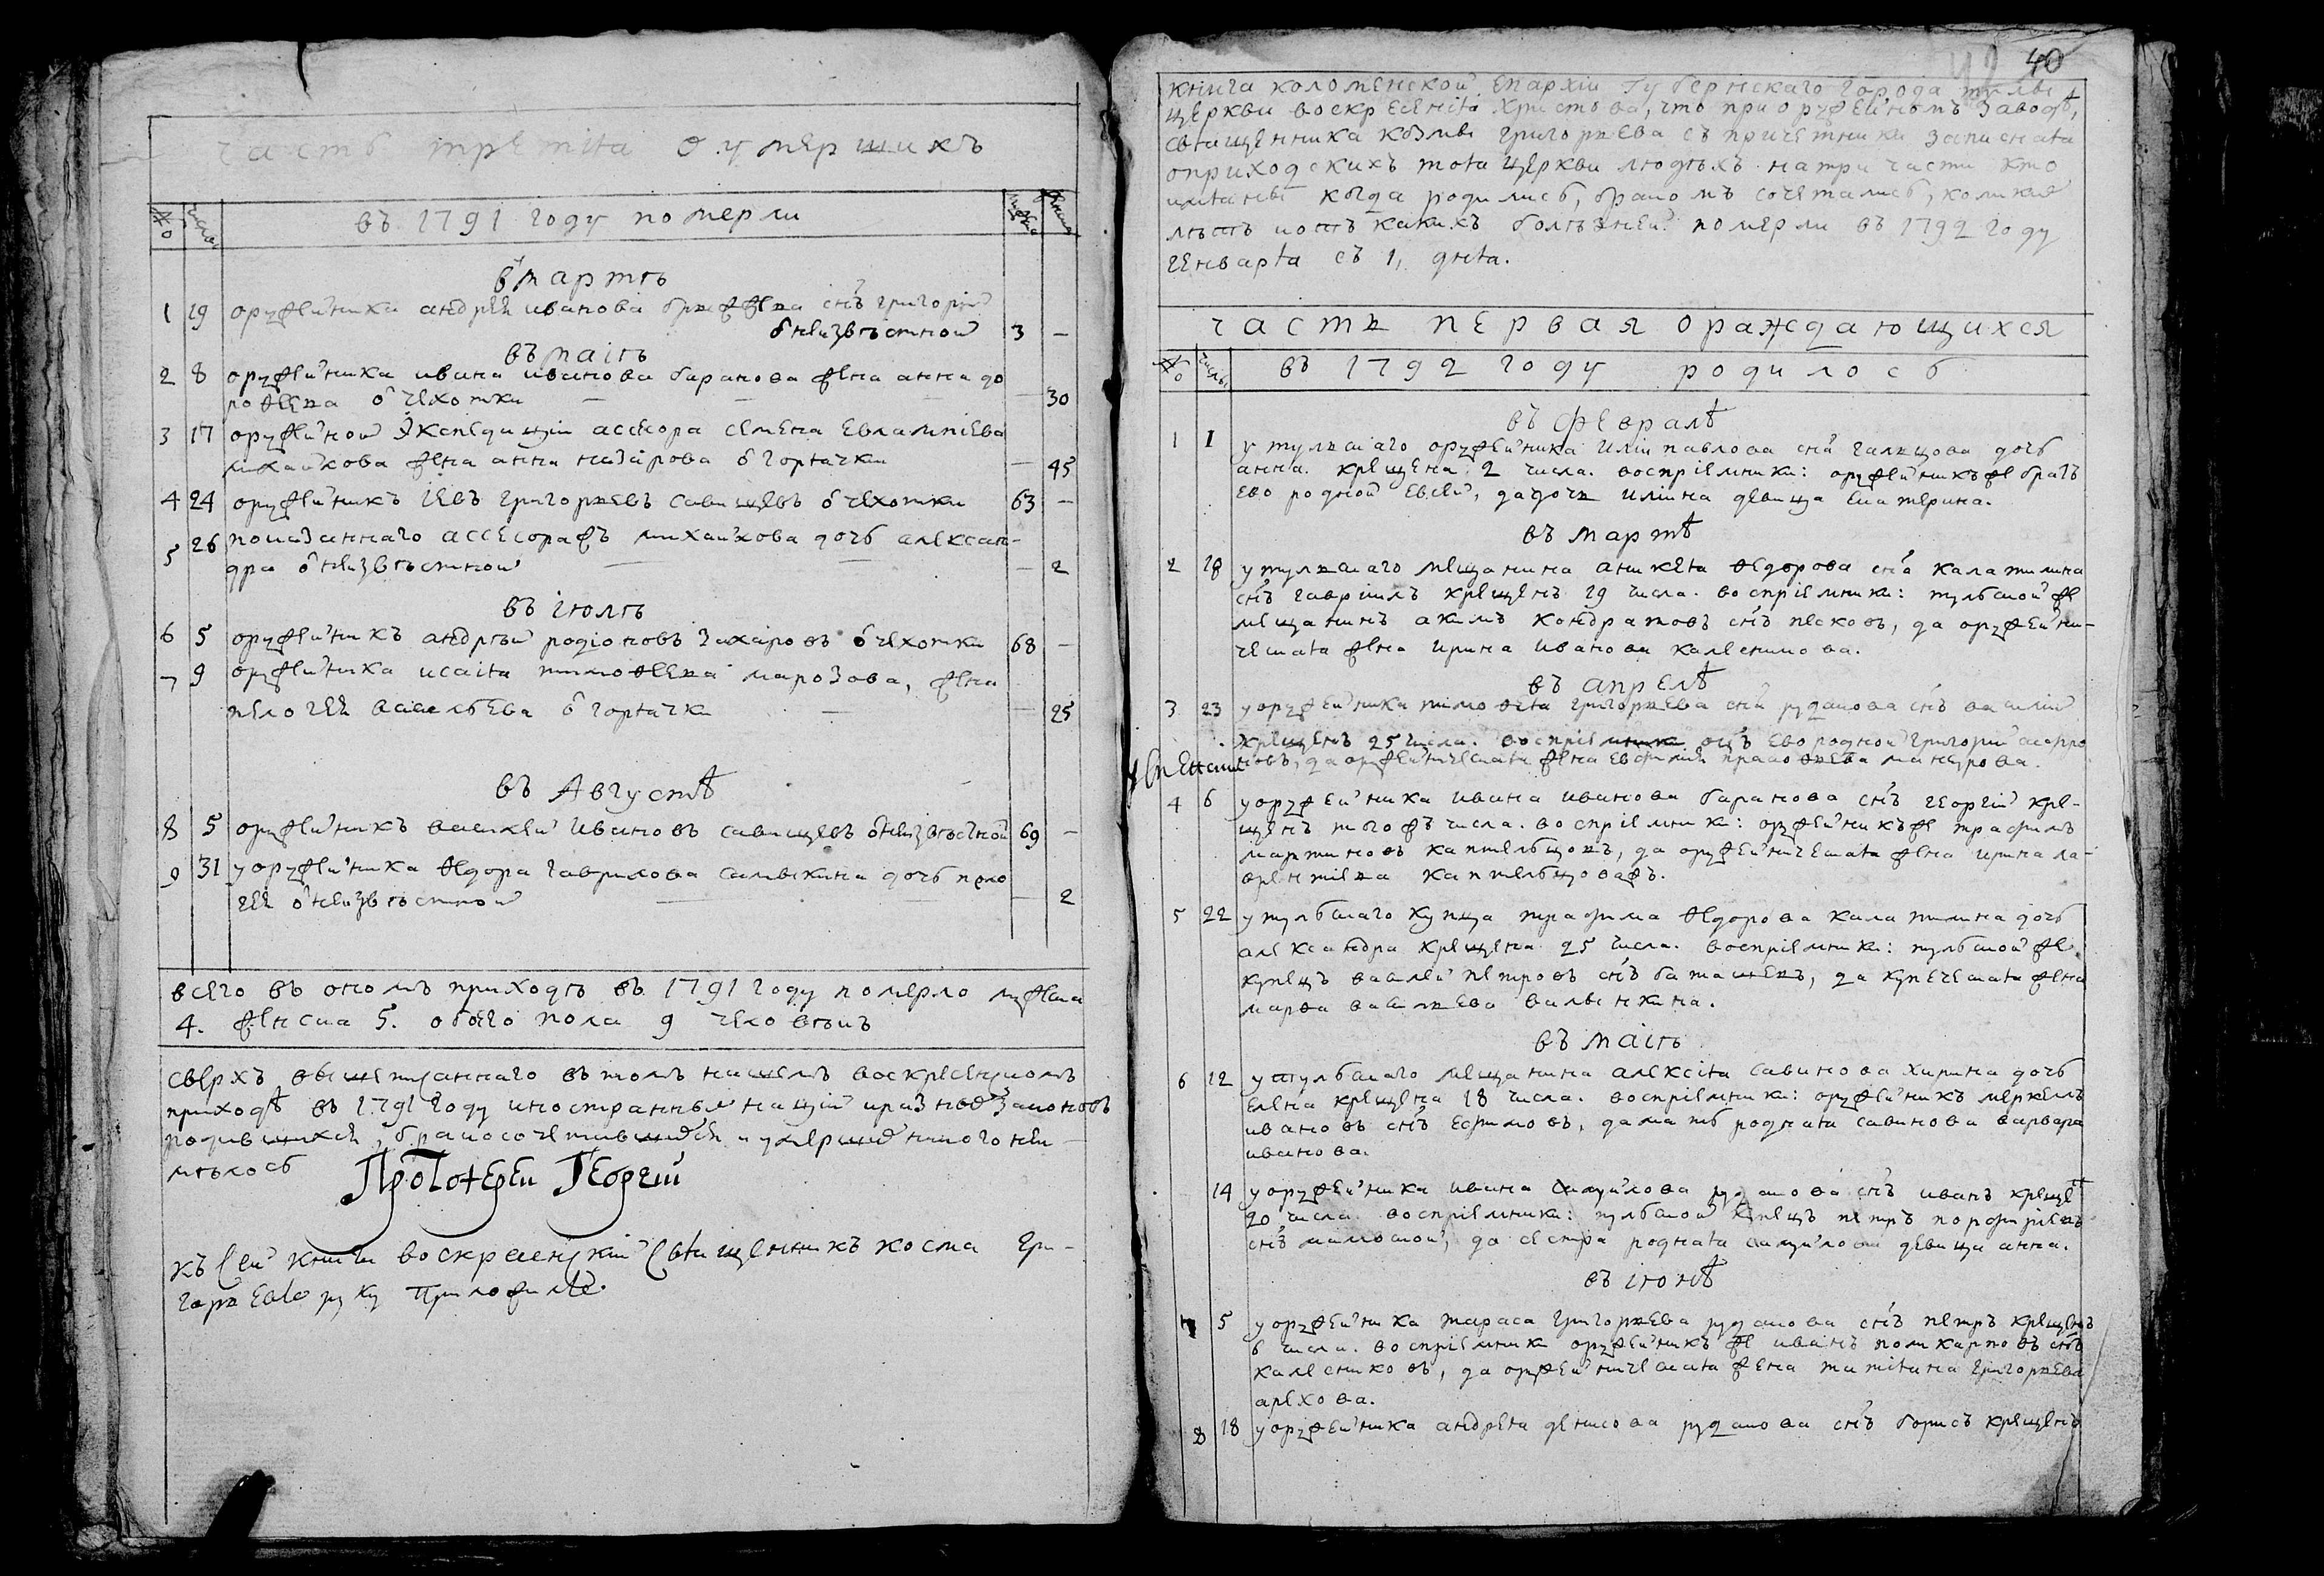 часть третiя о умершихъ
№ числа въ 1791 году померли
въ мартѣ
1 19 оружейника андрея иванова снъ григорiй
ѿ неизвѣстной 3 —
въ маiѣ
2 8 оружейника ивана иванова баранова жена анна до
рофеева ѿ чехотки — 30
3 17 оружейной Экспедицiи ассесора семена евлампiева
михайлова жена анна назарова ѿ горячки — 45
4 24 оружейникъ григорьевъ савищевъ ѿ чехотки 63 —
5 26 показаннаго ассесора жъ михайлова дочь алексан-
дра ѿ неизвѣстной — 2
въ iюлѣ
6 5 оружейникъ андрѣй родiоновъ захаровъ ѿ чехотки 68 —
7 9 оружейника исаiя тимофеева марозова, жена
пелогея васильева ѿ горячки — 25
въ Августѣ
8 5 оружейникъ василей ивановъ савищевъ ѿ неизвѣсной 69 —
9 31 у оружейника федора гаврилова салыкина дочь пело
гея ѿ неизвѣстной — 2
всего въ ономъ приходѣ въ 1791 году померло мужеска
4. женска 5. обоего пола 9 человѣкъ
сверхъ вышеписаннаго въ томъ нашемъ воскресенскомъ
приходѣ въ 1791 году иностранныя нацiи и разныхъ законовъ
родившихся, бракосочетавшихся и умершихъ никого не и
мѣлось
Протоiерей Георгiй
къ сей книги воскресенскiй священникъ косма гри-
горьевъ руку приложилъ.
40
книга коломенской епархiи губернскаго города тулы
церкви воскресенiя христова, что при оружейномъ заводѣ,
священника козмы григорьева съ причетники записная
о приходскихъ тоя церкви людѣхъ на три части кто
имяны когда родились, бракомъ сочетались, коликихъ
лѣтъ и отъ какихъ болѣзней померли въ 1792 году
генваря съ 1, дня.
часть первая о раждающихся
№ числы въ 1792 году родилось
въ февралѣ
1 1 у тулскаго оружейника илiи павлова сна галцова дочь
анна. крещена 2 числа. воспрiемники: оружейникъ же братъ
ево родной евсей, да дочь илiина девица екатерина.
въ мартѣ
2 18 у тулскаго мещанина аникея федорова сна калатилина
снъ гаврiилъ крещенъ 19 числа. воспрiемники: тульской же
мещанинъ акимъ кондратовъ снъ песковъ, да оружейни-
ческая жена ирина иванова калесникова.
въ апрелѣ
3 23 у оружейника тимофея григорьева сна рудакова снъ василiй
крещенъ 25 числа. воспрiемники оцъ ево родной григорiй
да оружейническая жена евфимiя
4 6 у оружейника ивана иванова баранова снъ георгiй кре-
щенъ того жъ числа. воспрiемники: оружейникъ же трафимъ
мартиновъ каптельцовъ, да оружейническая жена ирина ла-
врентiева каптельцова жъ.
5 22 у тульскаго купца трафима федорова калатилина дочь
александра крещена 25 числа. воспрiемники: тульской же
купецъ василей петровъ снъ баташевъ, да купеческая жена
марфа васильева
въ маiѣ
6 12 у тульскаго мещанина алексiя савинова хирина дочь
елена крещена 18 числа. воспрiемники: оружейникъ меркелъ
ивановъ снъ ефимовъ, да мать родная савинова варвара
иванова.
14 у оружейника ивана самуйлова рудакова снъ иванъ креще
20 числа. воспрiемники: тульской купецъ петръ порфирьевъ
снъ да сестра родная самуйлова девица анна.
въ iюнѣ
7 5 у оружейника тараса григорьева рудакова снъ петръ крещенъ
6 числа. воспрiемники оружейникъ же иванъ поликарповъ снъ
калесниковъ, да оружейническая жена татiана григорьева
арехова.
8 18 у оружейника андрея денисова рудакова снъ борисъ крещенъ